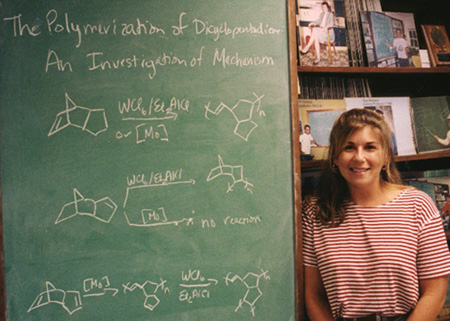 The Polymerization of Dicyclopentadiene:
An Investigation of Mechanism
WCl6/Et2AlCl
or [Mo]
n
WCl6/Et2AlCl
[Mo]
no reaction
[Mo]
n
WCl6
Et2AlCl
n